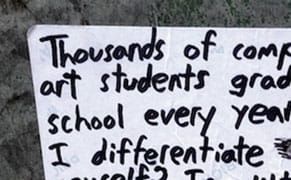 Thousands of comp
art students grad
school every year
I differentiate